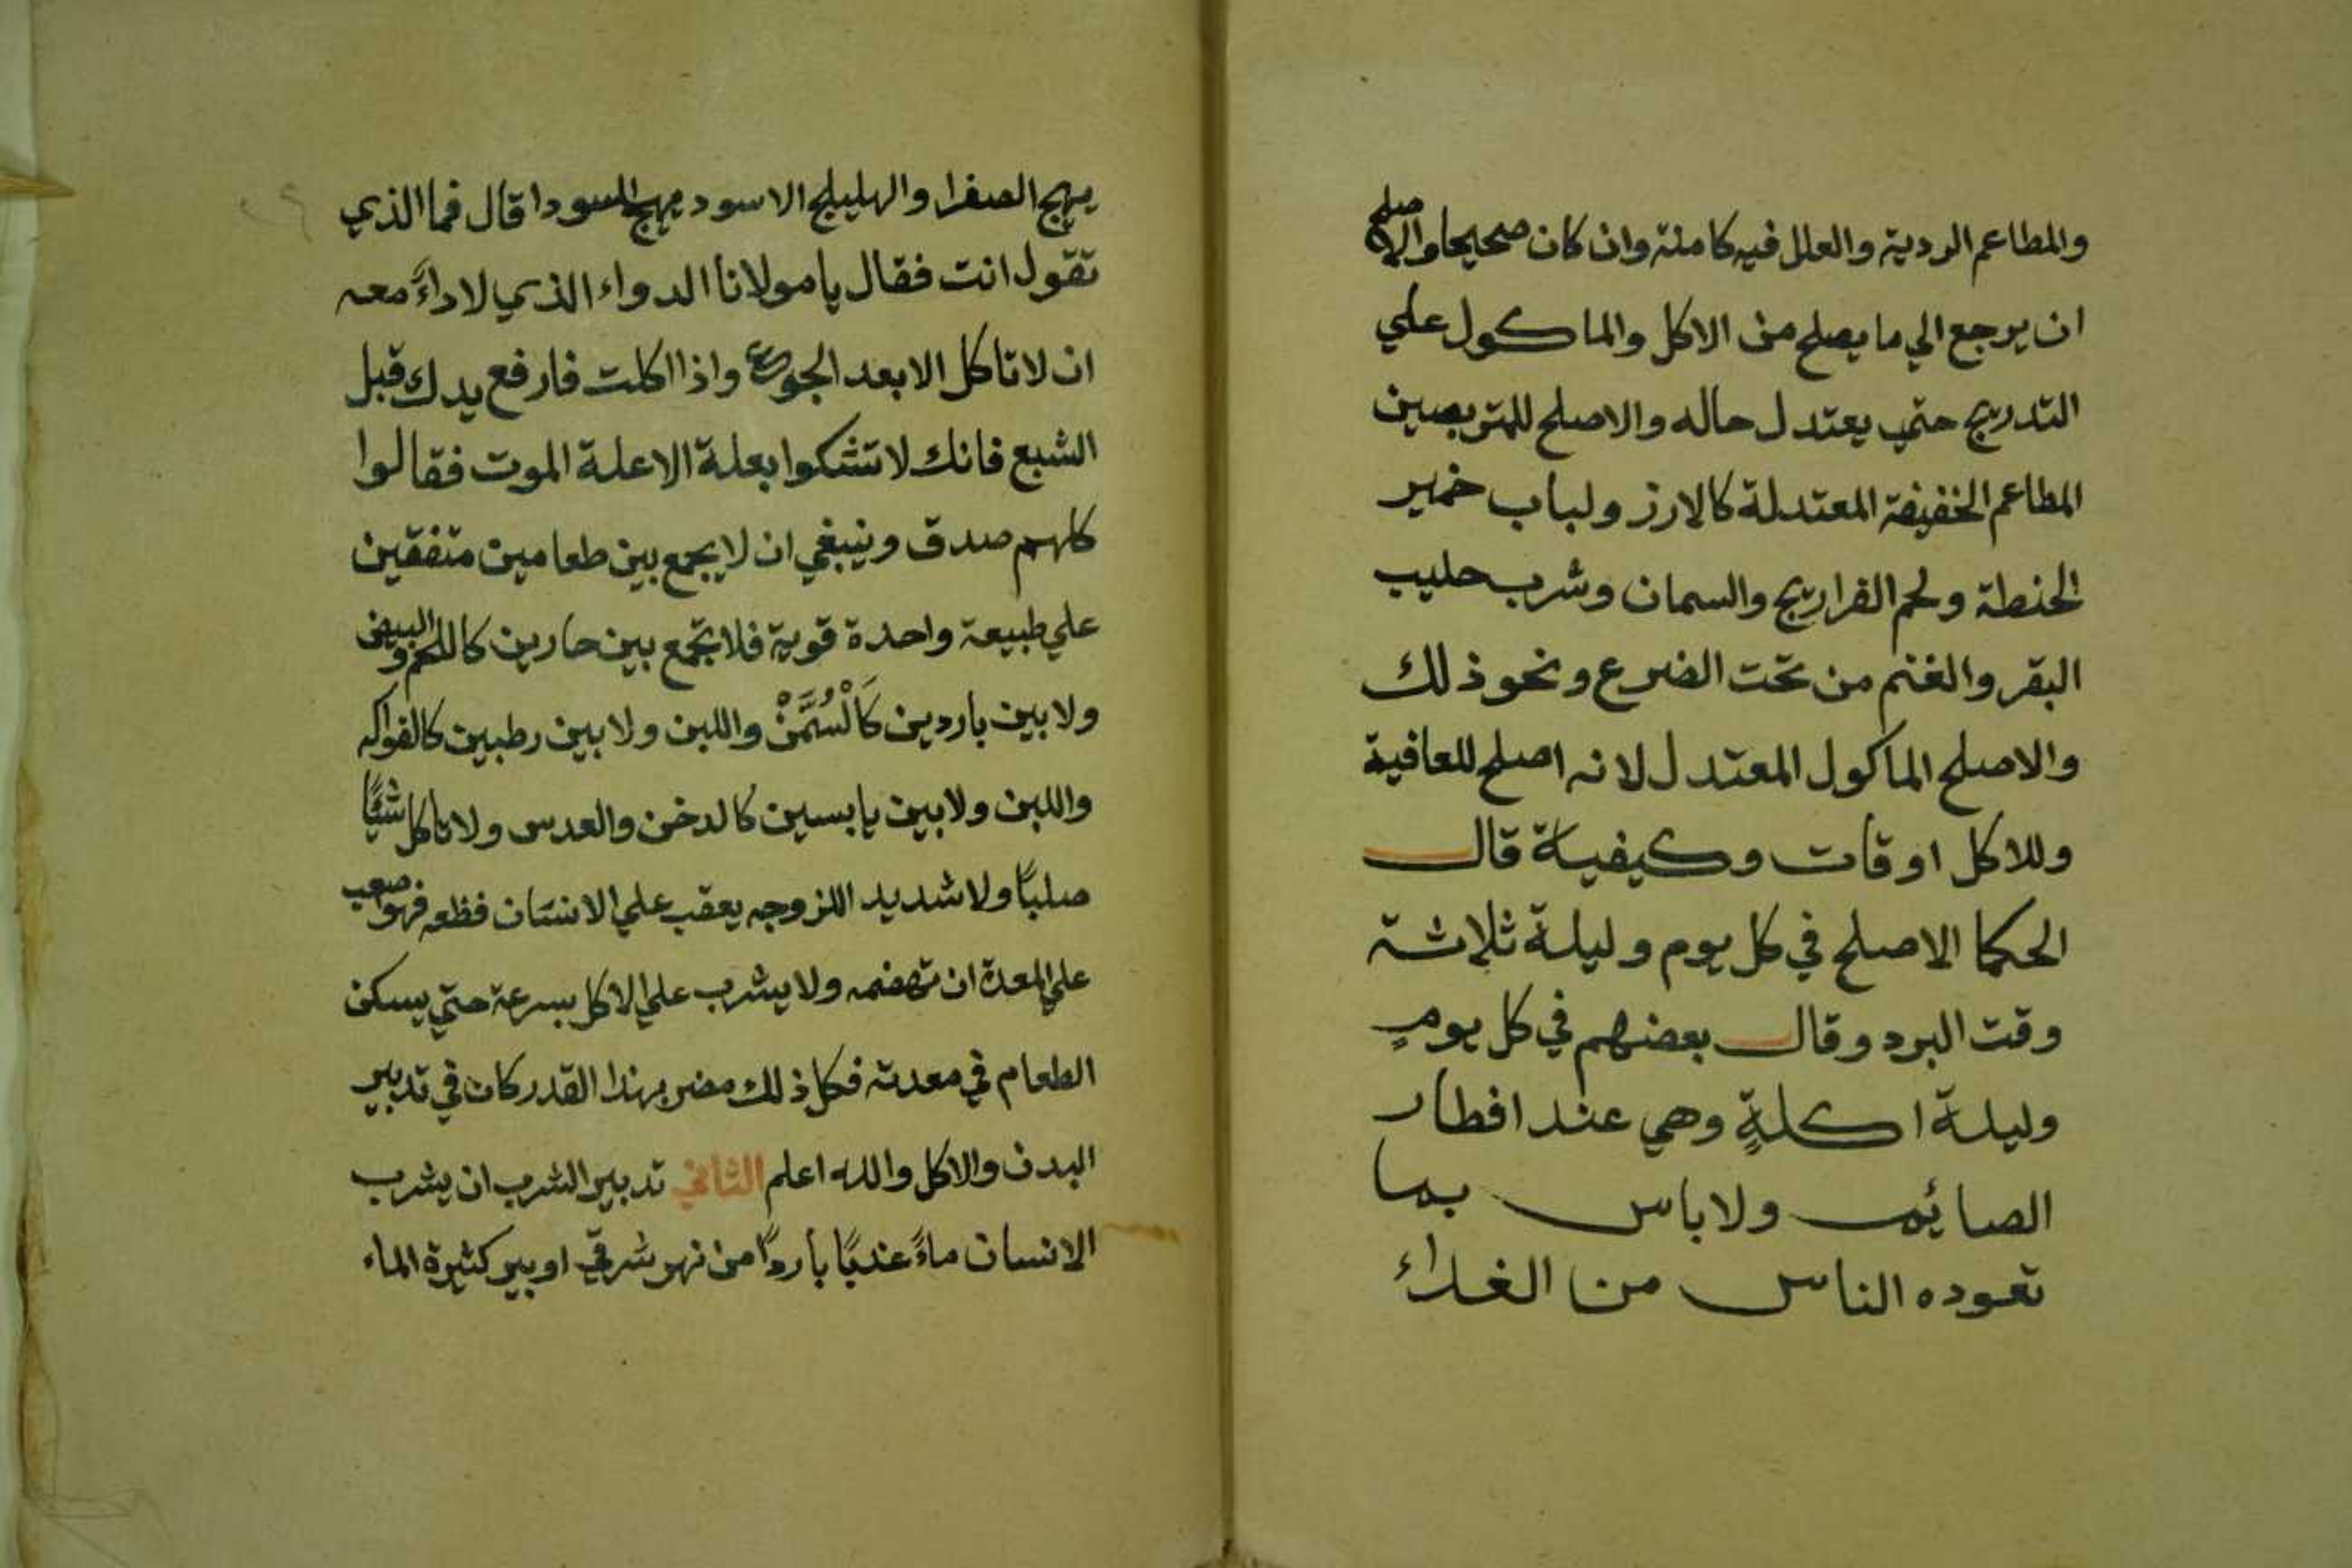 والمطاعم الردية والعلل فيه كامنة وان كان صحيحا والاصلح
ان يرجع الي ما يصلح من الاكل والماكول علي
التدريج حتي يعتدل حاله والاصلح للمتربصين
المطاعم الخفيفة المعتدلة كالارز ولباب خمير
الحنطة ولحم الفراريج والسمان وشرب حليب
البقر والغنم من تحت الضرع ونحو ذلك
والاصلح الماكول المعتدل لانه اصلح للعافية
وللاكل اوقات وكيفية قال
الحكما الاصلح في كل يوم وليلة ثلاثة
وقت البرد وقال بعضهم في كل يومٍ
وليلة اكلةٍ وهي عند افطار
الصائم ولا باس بما
تعوده الناس من الغداء
يهيج الصفرا والهليلج الاسود يهيج السودا قال فما الذي
تقول انت فقال يا مولانا الدواء الذي لا داءً معه
ان لا تاكل الا بعد الجوع واذا اكلت فارفع يدك قبل
الشبع فانك لا تشكوا بعلة الا علة الموت فقالوا
كلهم صدق وينبغي ان لا يجمع بين طعامين متفقين
علي طبيعة واحدة قوية فلا تجمع بين حارين كاللحم والبيض
ولا بين باردين كَالْسُمَّنْ واللبن ولا بين رطبين كالفواكه
واللبن ولا بين يابسين كالدخن والعدس ولا تاكل شيًا
صلبًا ولا شديد اللزوجه يعقب علي الانسان فظعه فهو صعب
علي المعدة ان تهضمه ولا يشرب علي الاكل بسرعة حتي يسكن
الطعام في معدته فكل ذلك مضر بهذا القدر كان في تدبير
البدن والاكل والله اعلم الثاني تدبير الشرب ان يشرب
الانسان ماءً عذبًا باردًا من نهر شرقي او بير كثيرة الماء